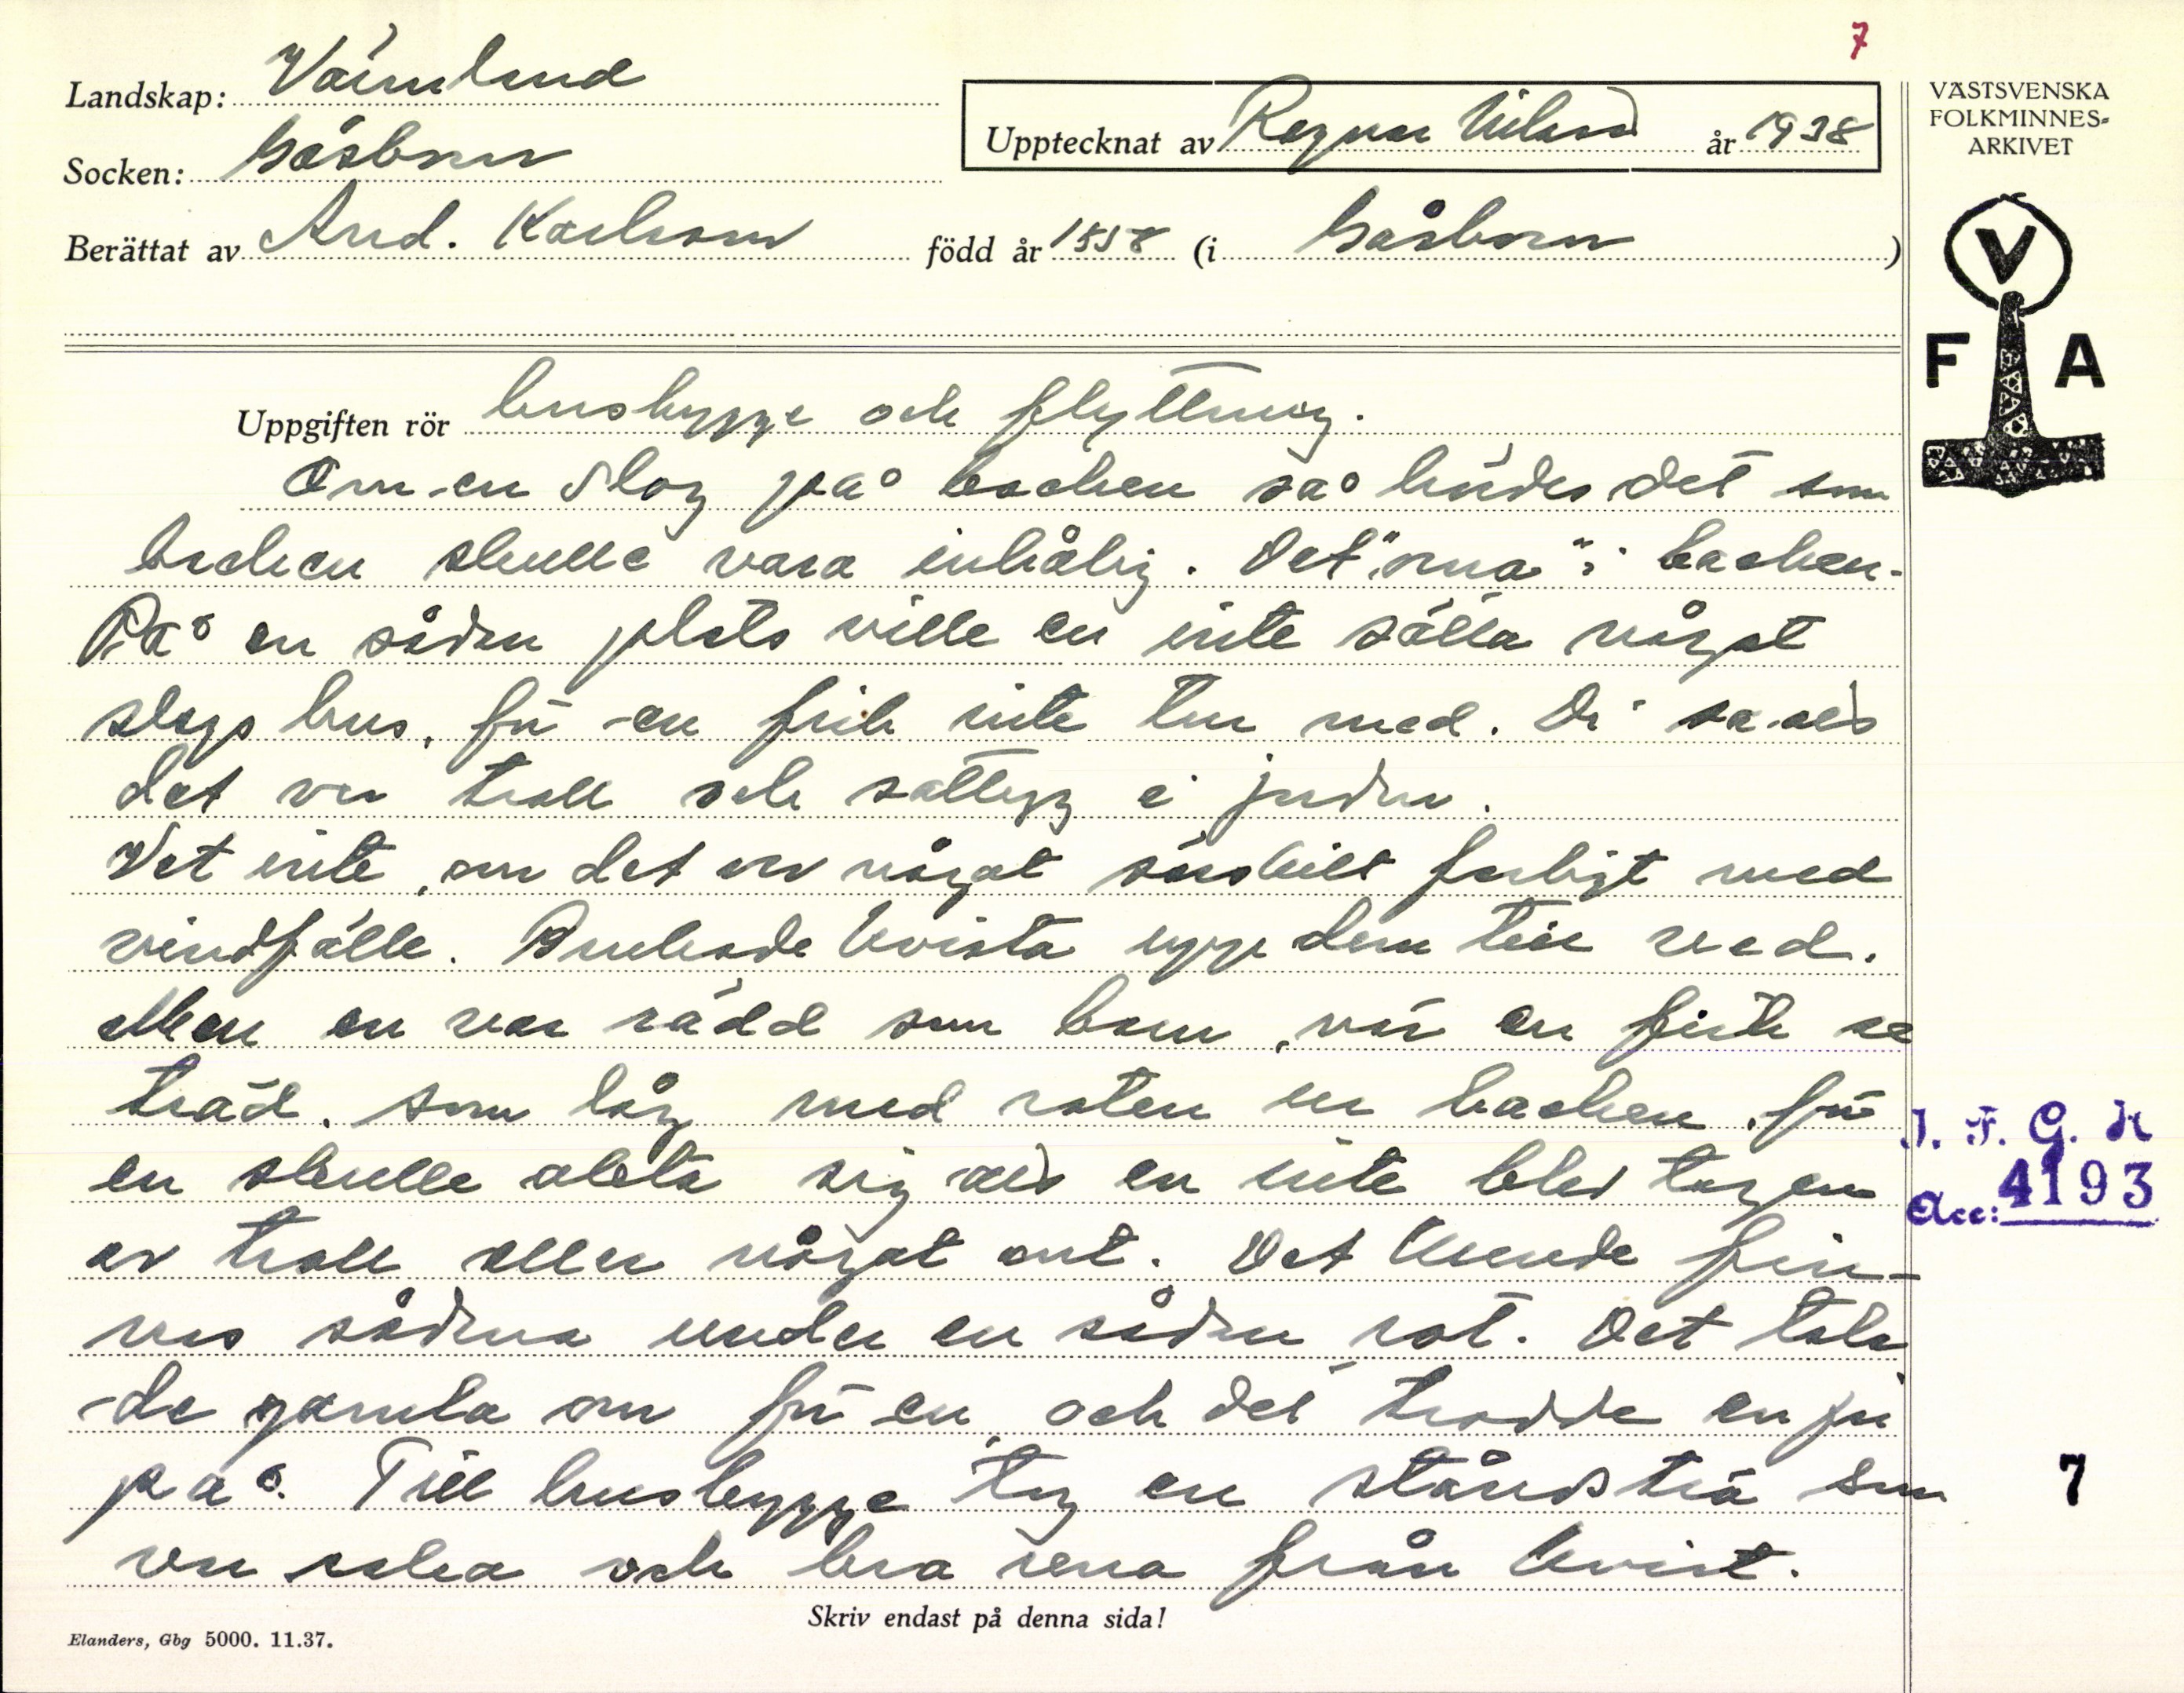 7
Landskap: Värmland
Socken: Gåsborn
Upptecknat av Ragnar Nilsson år 1938
Berättat av And. Karlsson född år 1858 (i Gåsborn)
VÄSTSVENSKA
FOLKMINNES-
ARKIVET
V
F A
Uppgiften rör husbygge och flyttning.
Om en slog på backen så hördes det som
backen skulle vara inhålig. Det "orna" i backen.
På en sådan plats ville en inte sätta något
slags hus, för en fick inte tur med. Di sa att
det var troll och sattyg i jorden.
Vet inte, om det var något särskilt farligt med
vindfälle. Brukade kvista upp dem till ved.
Men en var rädd som barn, när en fick se
träd, som låg med roten ur backen, för
en skulle akta sig att en inte blev tagen
av troll eller något ont. Det kunde fin-
nas sådana under en sådan rot. Det tala
de gamla om för en och det trodde en ju
på. Till husbygge tog en stånds trä som
var raka och bra rena från kvist.
I. F. G. H
Acc: 4193
7
Skriv endast på denna sida!
Elanders, Gbg 5000. 11.37.